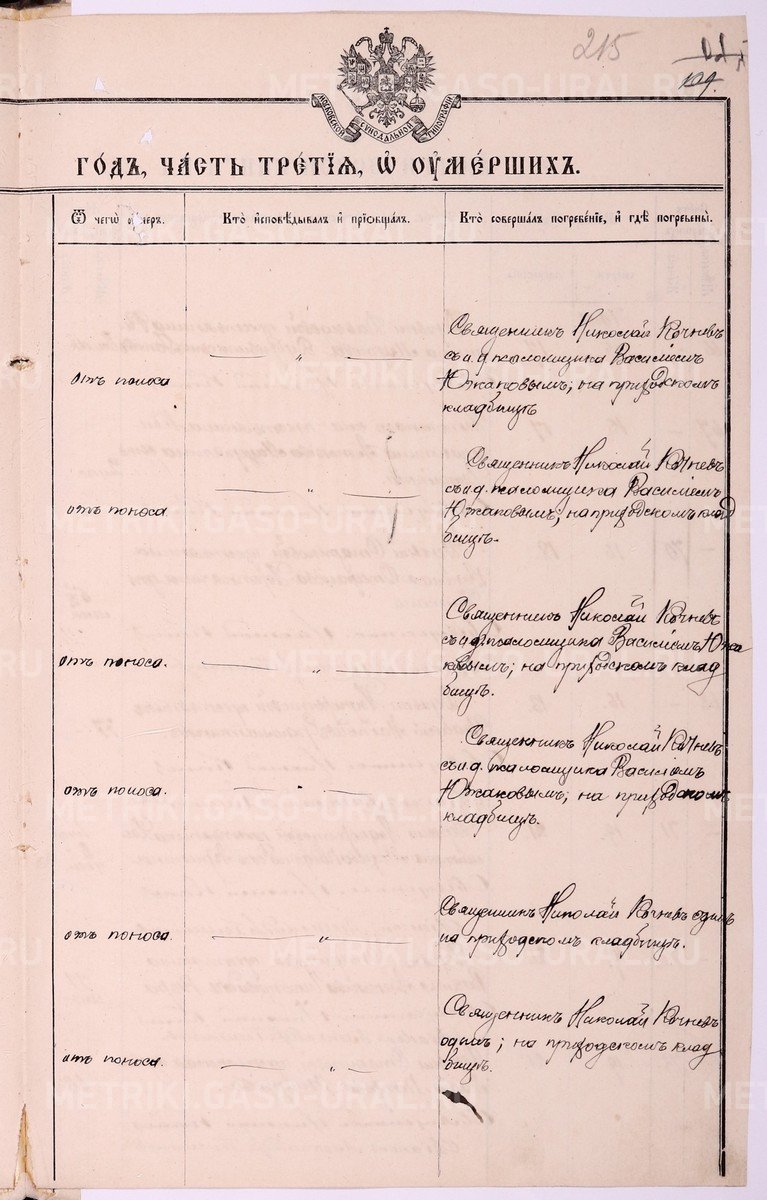 215
109.
МОСКОВСКОЙ СѴНОДАЛЬНОЙ ТИПОГРАФІИ
ГО́ДЪ, ЧА́СТЬ ТРЕ́ТІЯ, Ѽ ОУМЕ́РШИХЪ.
Ѿ чегѡ̀ умеръ.
Кто̀ и҆сповѣ́дывалъ и҆ прїѡбща́лъ.
Кто̀ соверша́лъ погребе́нїе, и҆ гдѣ̀ погребены̀.
отъ поноса
— „ —
Священникъ Николай Кочневъ
съ и. д. псаломщика Василіемъ
Южаковымъ; на приходскомъ
кладбищѣ
отъ поноса
— „ —
Священникъ Николай Кочневъ
съ и. д. псаломщика Василіемъ
Южаковымъ, на приходскомъ клад
бищѣ.
отъ поноса.
— „ —
Священникъ Николай Кочневъ
съ и. д. псаломщика Василіемъ Южа
ковымъ; на приходскомъ клад
бищѣ.
отъ поноса.
— „ —
Священникъ Николай Кочневъ
съ и. д. псаломщика Василіемъ
Южаковымъ; на приходскомъ
кладбищѣ.
отъ поноса.
— „ —
Священникъ Николай Кочневъ одинъ
на приходскомъ кладбищѣ.
отъ поноса.
— „ —
Священникъ Николай Кочневъ
одинъ; на приходскомъ клад
бищѣ.
METRIKI.GASO-URAL.RU